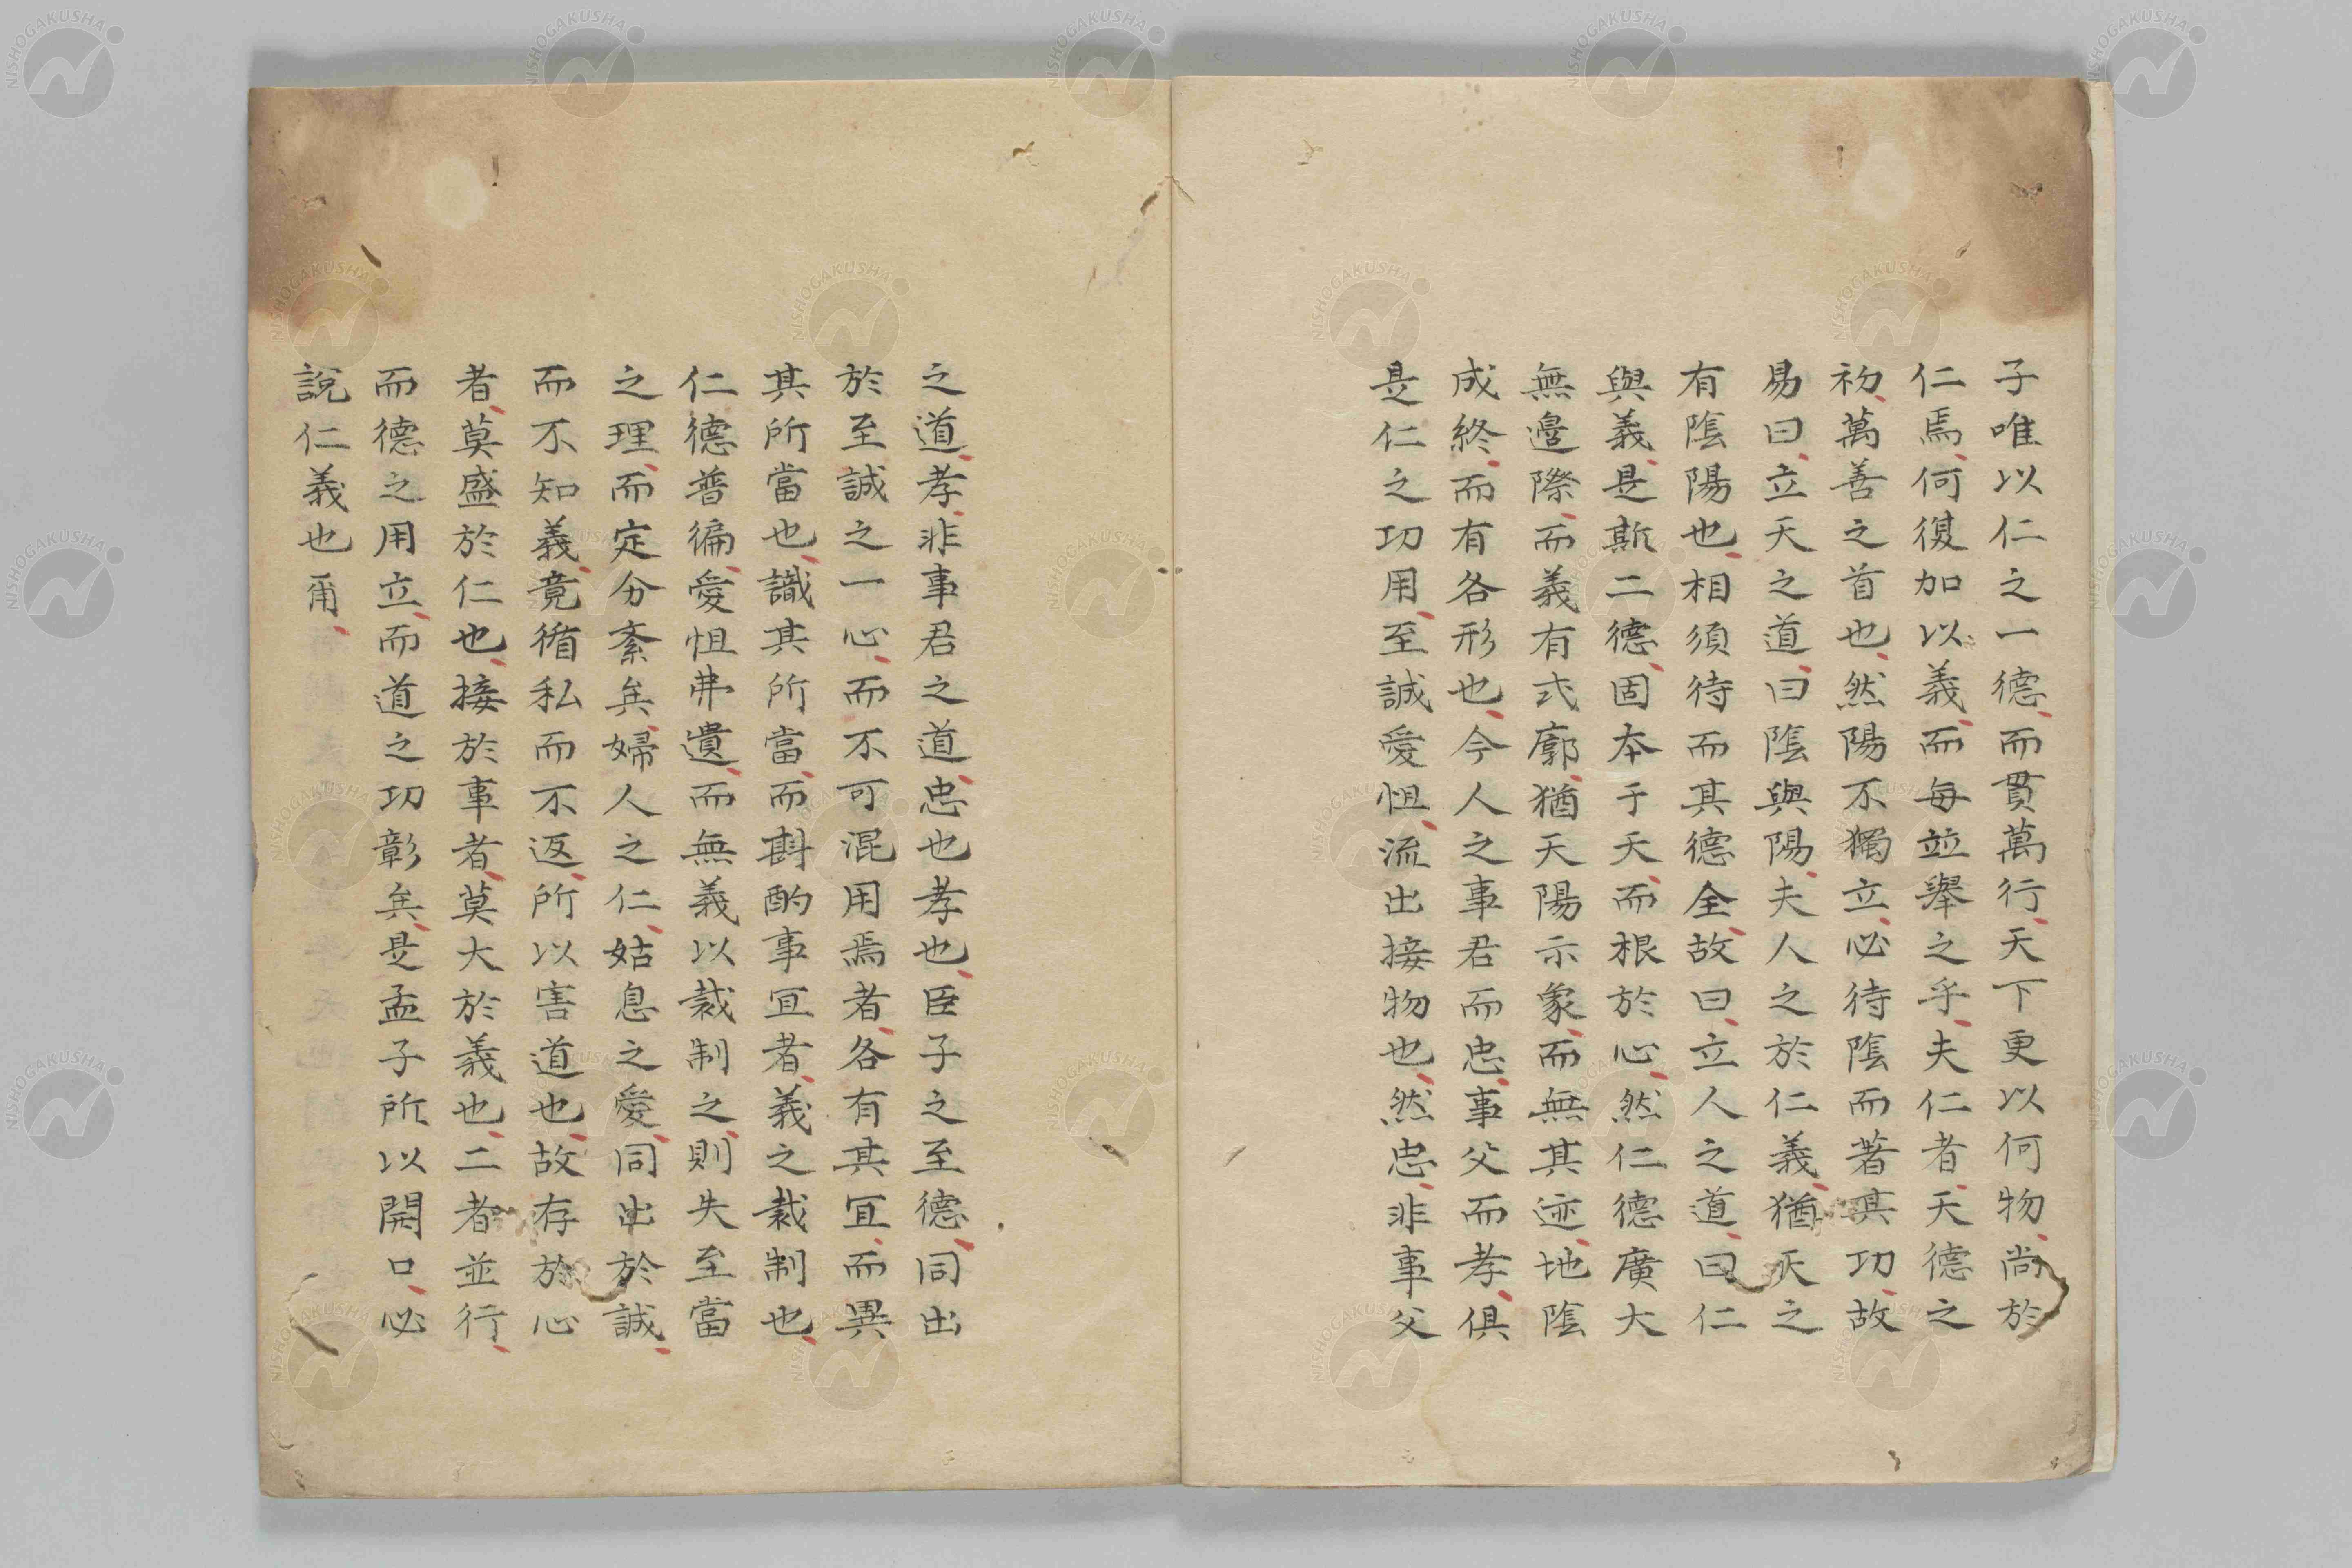 子唯以仁之一德而貫萬行天下更以何物尚於
仁焉何復加以義而每並舉之乎夫仁者天德之
初萬善之首也然陽不獨立必待陰而著其功故
易曰立天之道曰陰與陽夫人之於仁義猶天之
有陰陽也相須待而其德全故曰立人之道曰仁
與義是斯二德固本于天而根於心然仁德廣大
無邊際而義有弍廓猶天陽示象而無其迹地陰
成終而有各形也今人之事君而忠事父而孝俱
是仁之功用至誠愛怛流出接物也然忠非事父
之道孝非事君之道忠也孝也臣子之至德同出
於至誠之一心而不可混用焉者各有其宜而異
其所當也識其所當而斟酌事宜者義之裁制也
仁德普徧愛怛弗遺而無義以裁制之則失至當
之理而定分紊矣婦人之仁姑息之愛同出於誠
而不知義竟循私而不返所以害道也故存於心
者莫盛於仁也接於事者莫大於義也二者並行
而德之用立而道之功彰矣是孟子所以開口必
說仁義也爾
NISHOGAKUSHA